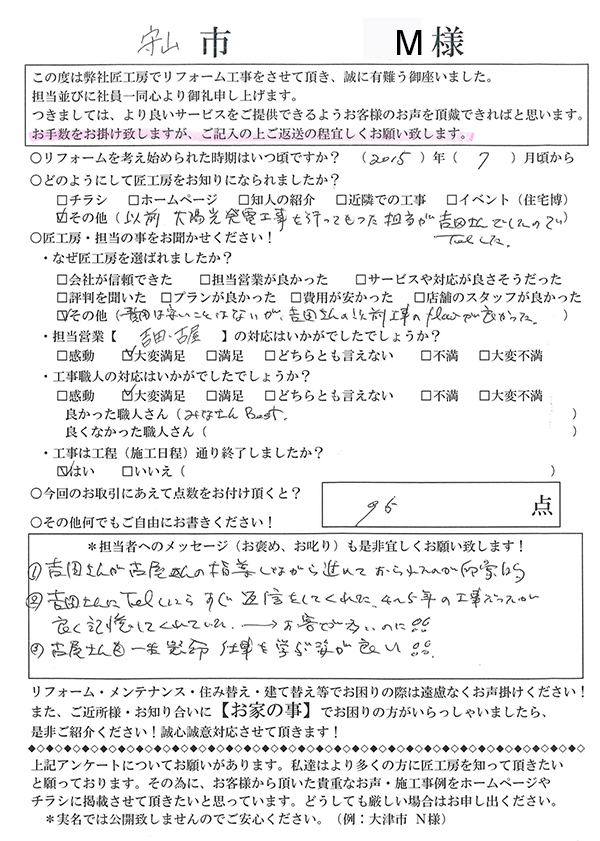 守山 市 M 様
この度は弊社匠工房でリフォーム工事をさせて頂き、誠に有難う御座いました。
担当並びに社員一同心より御礼申し上げます。
つきましては、より良いサービスをご提供できるようお客様のお声を頂戴できればと思います。
お手数をお掛け致しますが、ご記入の上ご返送の程宜しくお願い致します。
○リフォームを考え始められた時期はいつ頃ですか？ （2015）年（ 7 ）月頃から
○どのようにして匠工房をお知りになられましたか？
□チラシ □ホームページ □知人の紹介 □近隣での工事 □イベント（住宅博）
☑その他（以前 太陽光発電工事を行ってもらった担当が吉田さんでしたので）
Telした。
○匠工房・担当の事をお聞かせください！
・なぜ匠工房を選ばれましたか？
□会社が信頼できた □担当営業が良かった □サービスや対応が良さそうだった
□評判を聞いた □プランが良かった □費用が安かった □店舗のスタッフが良かった
☑その他（費用は安いことはないが、吉田さんの以前工事のflowが良かった。）
・担当営業【 吉田・古屋 】の対応はいかがでしたでしょうか？
□感動 ☑大変満足 □満足 □どちらとも言えない □不満 □大変不満
・工事職人の対応はいかがでしたでしょうか？
□感動 ☑大変満足 □満足 □どちらとも言えない □不満 □大変不満
良かった職人さん（みなさんBest. ）
良くなかった職人さん（ ）
・工事は工程（施工日程）通り終了しましたか？
☑はい □いいえ（ ）
○今回のお取引にあえて点数をお付け頂くと？ 95 点
○その他何でもご自由にお書きください！
＊担当者へのメッセージ（お褒め、お叱り）も是非宜しくお願い致します！
① 吉田さんが古屋さんの指導しながら進れておられたのが印象的
② 吉田さんにTelしたらすぐ返信をしてくれた、4〜5年の工事だったが
良く記憶してくれていた。→お客さん多いのに!!
③ 古屋さんも一生懸命仕事を学ぶ姿が良い!!
リフォーム・メンテナンス・住み替え・建て替え等でお困りの際は遠慮なくお声掛けください！
また、ご近所様・お知り合いに【お家の事】でお困りの方がいらっしゃいましたら、
是非ご紹介ください！誠心誠意対応させて頂きます！
上記アンケートについてお願いがあります。私達はより多くの方に匠工房を知って頂きたい
と願っております。その為に、お客様から頂いた貴重なお声・施工事例をホームページや
チラシに掲載させて頂きたいと思っています。どうしても厳しい場合はお申し出ください。
＊実名では公開致しませんのでご安心ください。（例：大津市 N様）